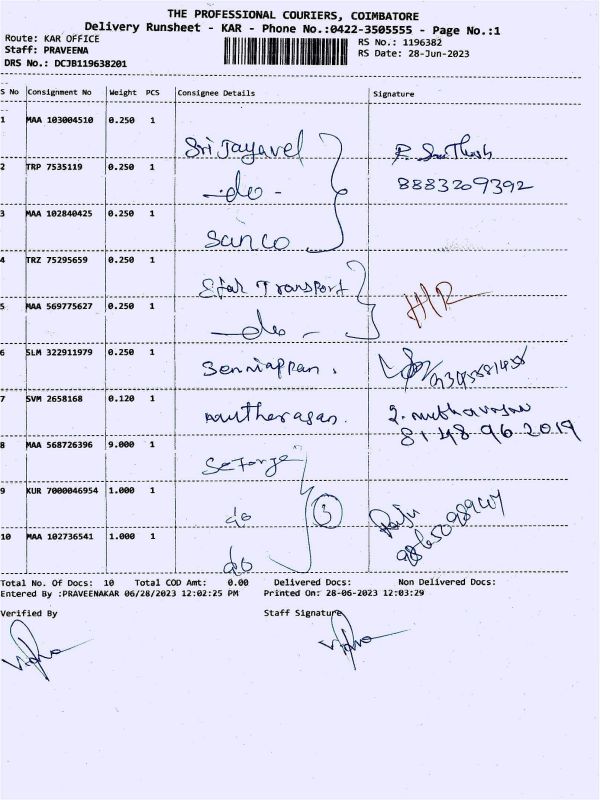 THE PROFESSIONAL COURIERS, COIMBATORE
Delivery Runsheet - KAR - Phone No.:0422-3505555 - Page No.:1
Route: KAR OFFICE
RS No.: 1196382
Staff: PRAVEENA
RS Date: 28-Jun-2023
DRS No.: DCJB119638201
S No Consignment No Weight PCS Consignee Details Signature
1 MAA 103004510 0.250 1 Sri Jayavel
2 TRP 7535119 0.250 1 -do- 8883209392
3 MAA 102840425 0.250 1 Sanco
4 TRZ 75295659 0.250 1 Transport
5 MAA 569775627 0.250 1 -do-
6 SLM 322911979 0.250 1 Senniappan.
7 SVM 2658168 0.120 1
8 MAA 568726396 9.000 1
9 KUR 7000046954 1.000 1 do 3 Raju
10 MAA 102736541 1.000 1 do
Total No. Of Docs: 10 Total COD Amt: 0.00 Delivered Docs: Non Delivered Docs:
Entered By :PRAVEENAKAR 06/28/2023 12:02:25 PM Printed On: 28-06-2023 12:03:29
Verified By Staff Signature